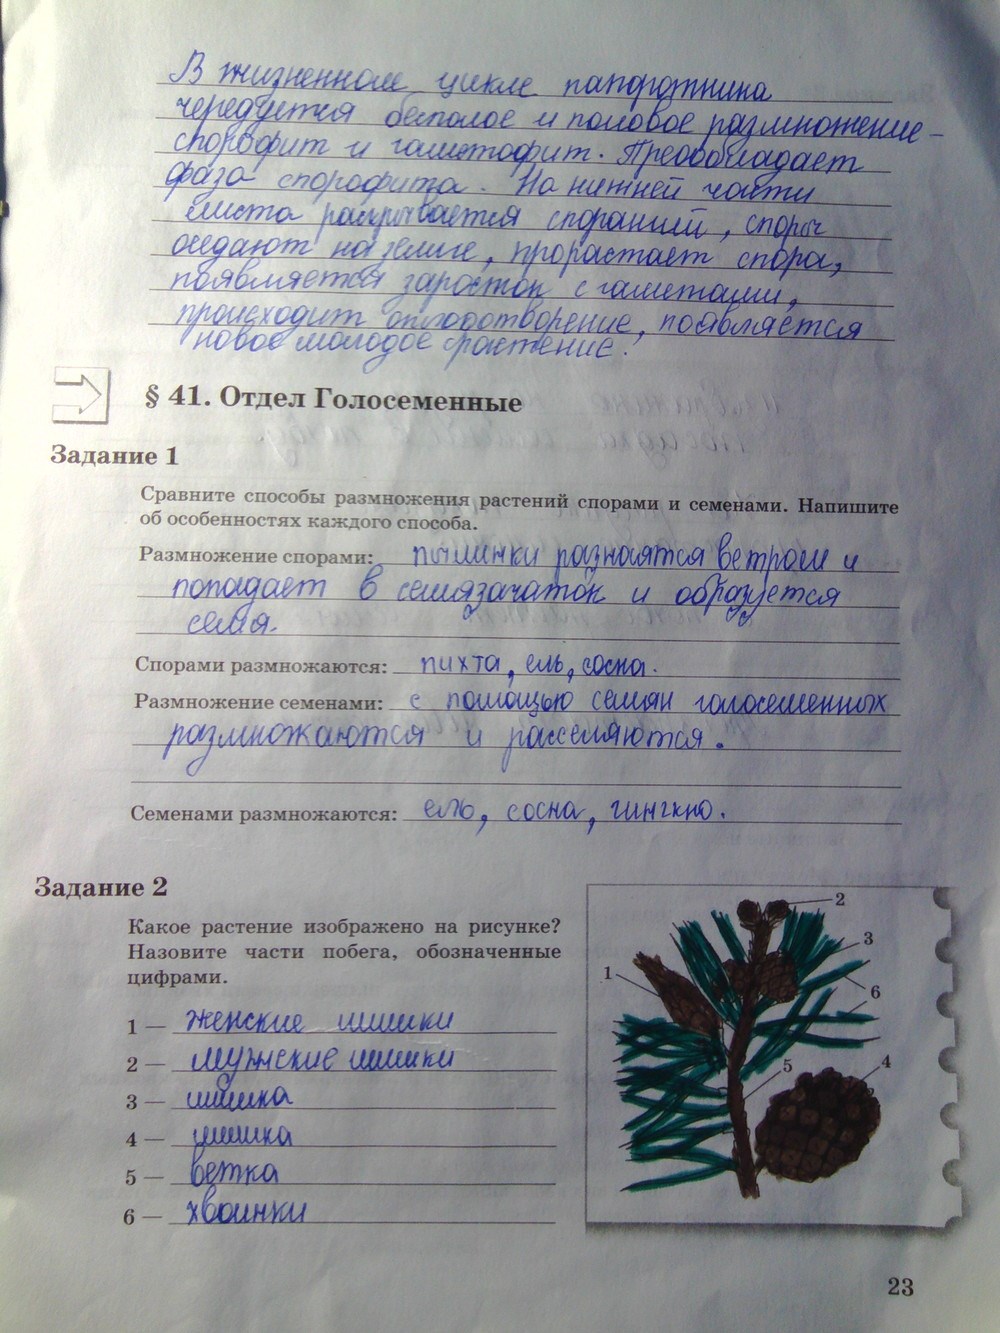 В жизненном цикле папоротника
чередуется бесполое и половое размножение -
спорофит и гаметофит. Преобладает
фаза спорофита. На нижней части
листа раскрывается спорангий, споры
оседают на земле, прорастает спора,
появляется заросток с гаметами,
происходит оплодотворение, появляется
новое молодое растение.
§ 41. Отдел Голосеменные
Задание 1
Сравните способы размножения растений спорами и семенами. Напишите
об особенностях каждого способа.
Размножение спорами: пылинки разносятся ветром и
попадает в семязачаток и образуется
семя.
Спорами размножаются: пихта, ель, сосна.
Размножение семенами: с помощью семян голосеменных
размножаются и расселяются.
Семенами размножаются: ель, сосна, гингкно.
Задание 2
Какое растение изображено на рисунке?
Назовите части побега, обозначенные
цифрами.
1 — женские шишки
2 — мужские шишки
3 — шишка
4 — шишка
5 — ветка
6 — хвоинки
2
3
1
6
5
4
23